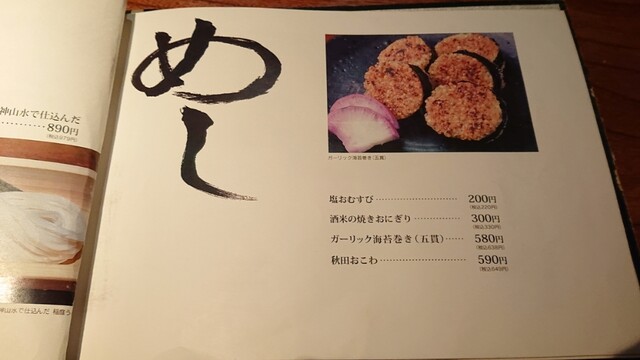 神山水で仕込んだ
890円
(税込979円)
め
し
ガーリック海苔巻き(五貫)
塩おむすび 200円
(税込220円)
酒米の焼きおにぎり 300円
(税込330円)
ガーリック海苔巻き(五貫) 580円
(税込638円)
秋田おこわ 590円
(税込649円)